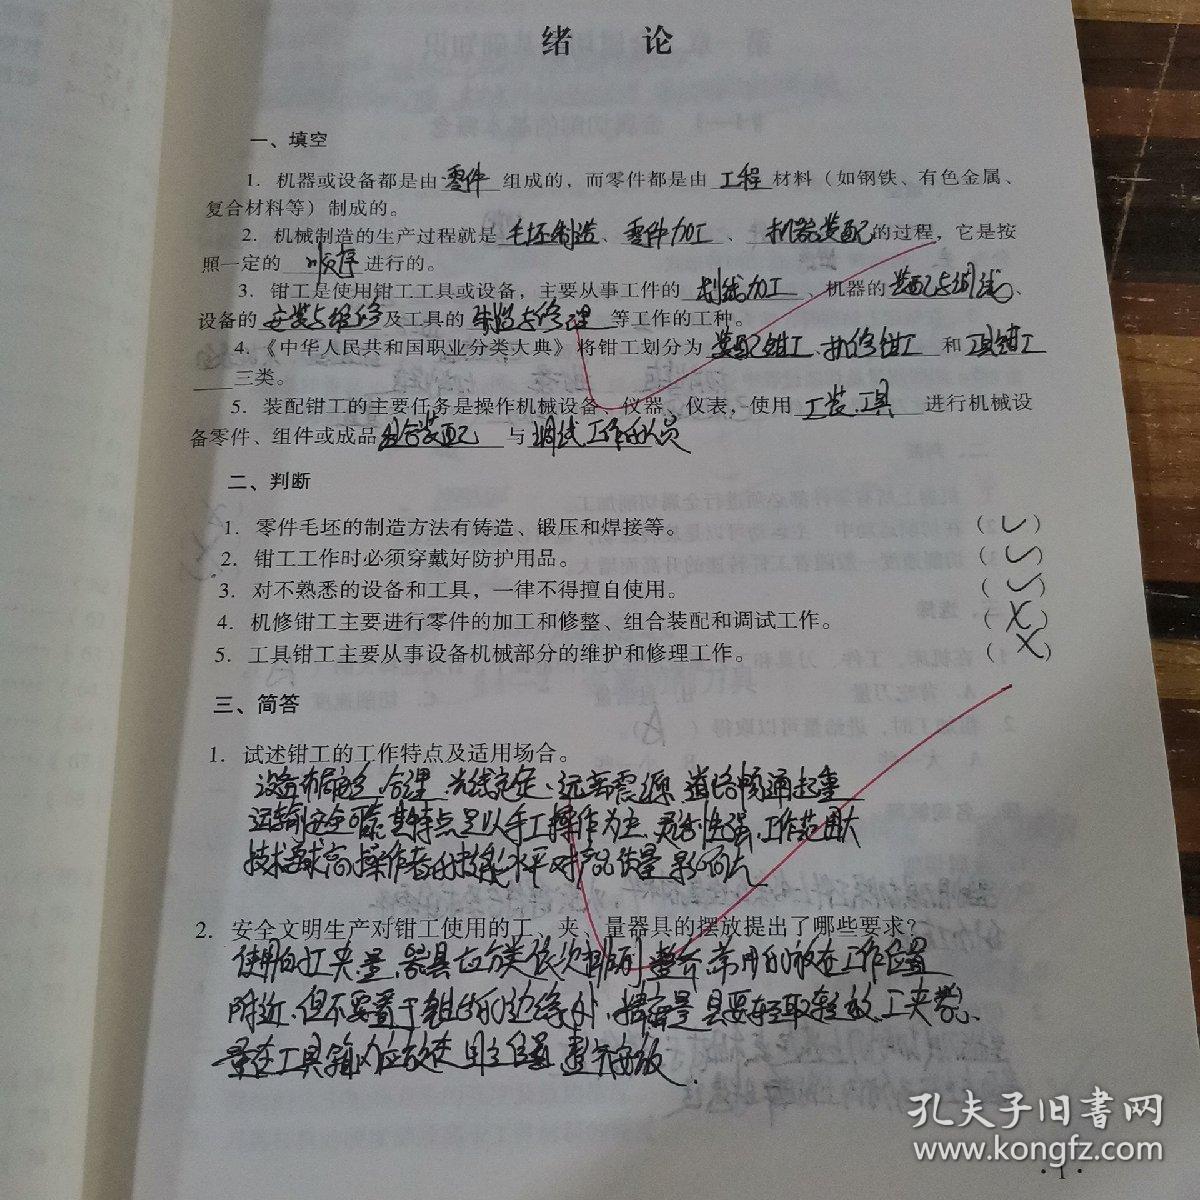 绪 论
一、填空
1. 机器或设备都是由 零件 组成的，而零件都是由 工程 材料（如钢铁、有色金属、
复合材料等）制成的。
2. 机械制造的生产过程就是 毛坯制造、 零件加工 、 机器装配 的过程，它是按
照一定的 顺序 进行的。
3. 钳工是使用钳工工具或设备，主要从事工件的 划线加工 、机器的 装配与调试、
设备的 安装与维修 及工具的 制造与修理 等工作的工种。
4.《中华人民共和国职业分类大典》将钳工划分为 装配钳工、机修钳工 和 工具钳工
三类。
5. 装配钳工的主要任务是操作机械设备、仪器、仪表，使用 工装、工具 进行机械设
备零件、组件或成品 组合装配 与 调试工作的人员
二、判断
1. 零件毛坯的制造方法有铸造、锻压和焊接等。 （✓）
2. 钳工工作时必须穿戴好防护用品。 （✓）
3. 对不熟悉的设备和工具，一律不得擅自使用。 （✓）
4. 机修钳工主要进行零件的加工和修整、组合装配和调试工作。 （×）
5. 工具钳工主要从事设备机械部分的维护和修理工作。 （×）
三、简答
1. 试述钳工的工作特点及适用场合。
设备布局 合理 光线 远离震源 道路畅通起重
运输安全可靠 其特点是以手工操作为主、灵活性强、工作范围大
技术要求高，操作者的技能水平对产品质量影响大
2. 安全文明生产对钳工使用的工、夹、量器具的摆放提出了哪些要求？
使用的工夹量 器具应分类依次排列 整齐，常用的放在工作位置
附近，但不要置于钳台的边缘处，精密量具要轻取轻放、工夹
量在工具箱内应放 固定位置 整齐安放.
孔夫子旧书网
www.kongfz.com
· 1 ·